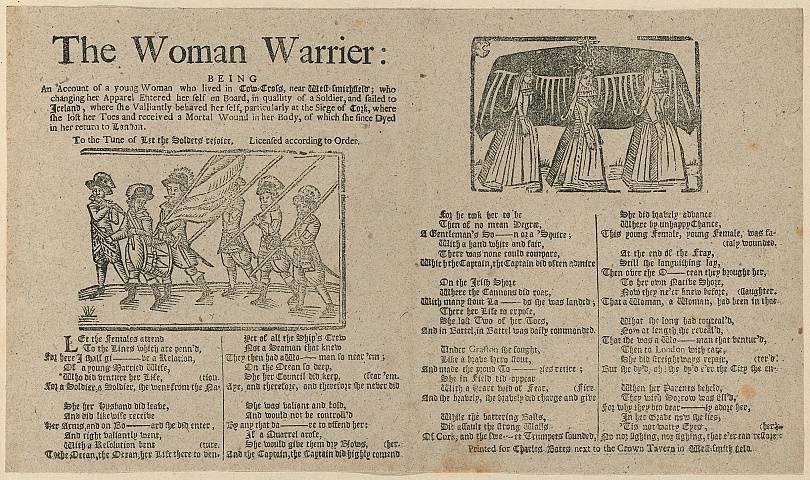 The Woman Warrier:
BEING
An Account of a young Woman who lived in Cow-Cross, near West-smithfield; who
changing her Apparel Entered her self on Board, in quality of a Soldier, and sailed to
Ireland, where she Valliantly behaved her self, particularly at the Siege of Cork, where
she lost her Toes and received a Mortal Wound in her Body, of which she since Dyed
in her return to London.
To the Tune of Let the Soldiers rejoice, Licensed according to Order.
LEt the Females attend
To the Lines which are penn'd,
For here I shall gi——ve a Relation,
Of a young Married Wife,
Who did venture her Life, (tion.
For a Soldier, a Soldier, she went from the Na-
She her Husband did leave,
And did likewise receive
Her Arms, and on Bo——ard she did enter,
And right valiantly went,
With a Resolution bent (ture.
To the Ocean, the Ocean, her Life there to ven-
Yet of all the Ship's Crew
Not a Seaman that knew
They then had a Wo——man so near 'em;
On the Ocean so deep,
She her Council did keep, (fear 'em.
Aye, and therefore, and therefore she never did
She was valiant and bold,
And would not be controll'd
By any that da——re to offend her:
If a Quarrel arose,
She would give them dry Blows, (her.
And the Captain, the Captain did highly comend
For he took her to be
Then of no mean Degree,
A Gentleman's So——n or a 'Squire;
With a hand white and fair,
There was none could compare,
Which the Captain, the Captain did often admire
On the Irish Shore
Where the Cannons did roar,
With many stout La——ds she was landed;
There her Life to expose,
She lost Two of her Toes,
And in Battel, in Battel was daily commanded.
Under Grafton she fought,
Like a brave Hero stout,
And made the proud To——ries retire;
She in Field did appear
With a Heart void of Fear, (Fire.
And she bravely, she bravely did charge and give
While the battering Balls,
Did assault the strong Walls
Of Cork, and the swe——et Trumpets sounded,
She did bravely advance
Where by unhappy Chance,
This young Female, young Female, was fa-
(taly wounded.
At the end of the Fray,
Still she languishing lay,
Then over the O——cean they brought her,
To her own Native Shore,
Now they ne'er knew before, (daughter.
That a Woman, a Woman, had been in that
What she long had conceal'd,
Now at length she reveal'd,
That she was a Wo——man that ventur'd,
Then to London with care,
She did straightways repair, (ter'd.
But she dy'd, oh! she dy'd e'er the City she en-
When her Parents beheld,
They with Sorrow was fill'd,
For why they did dear——ly adore her,
In her Grave now she lies,
'Tis not watery Eyes, (her.
No nor sighing, nor sighing, that e'er can restore
Printed for Charles Bates next to the Crown Tavern in West-smith-field.